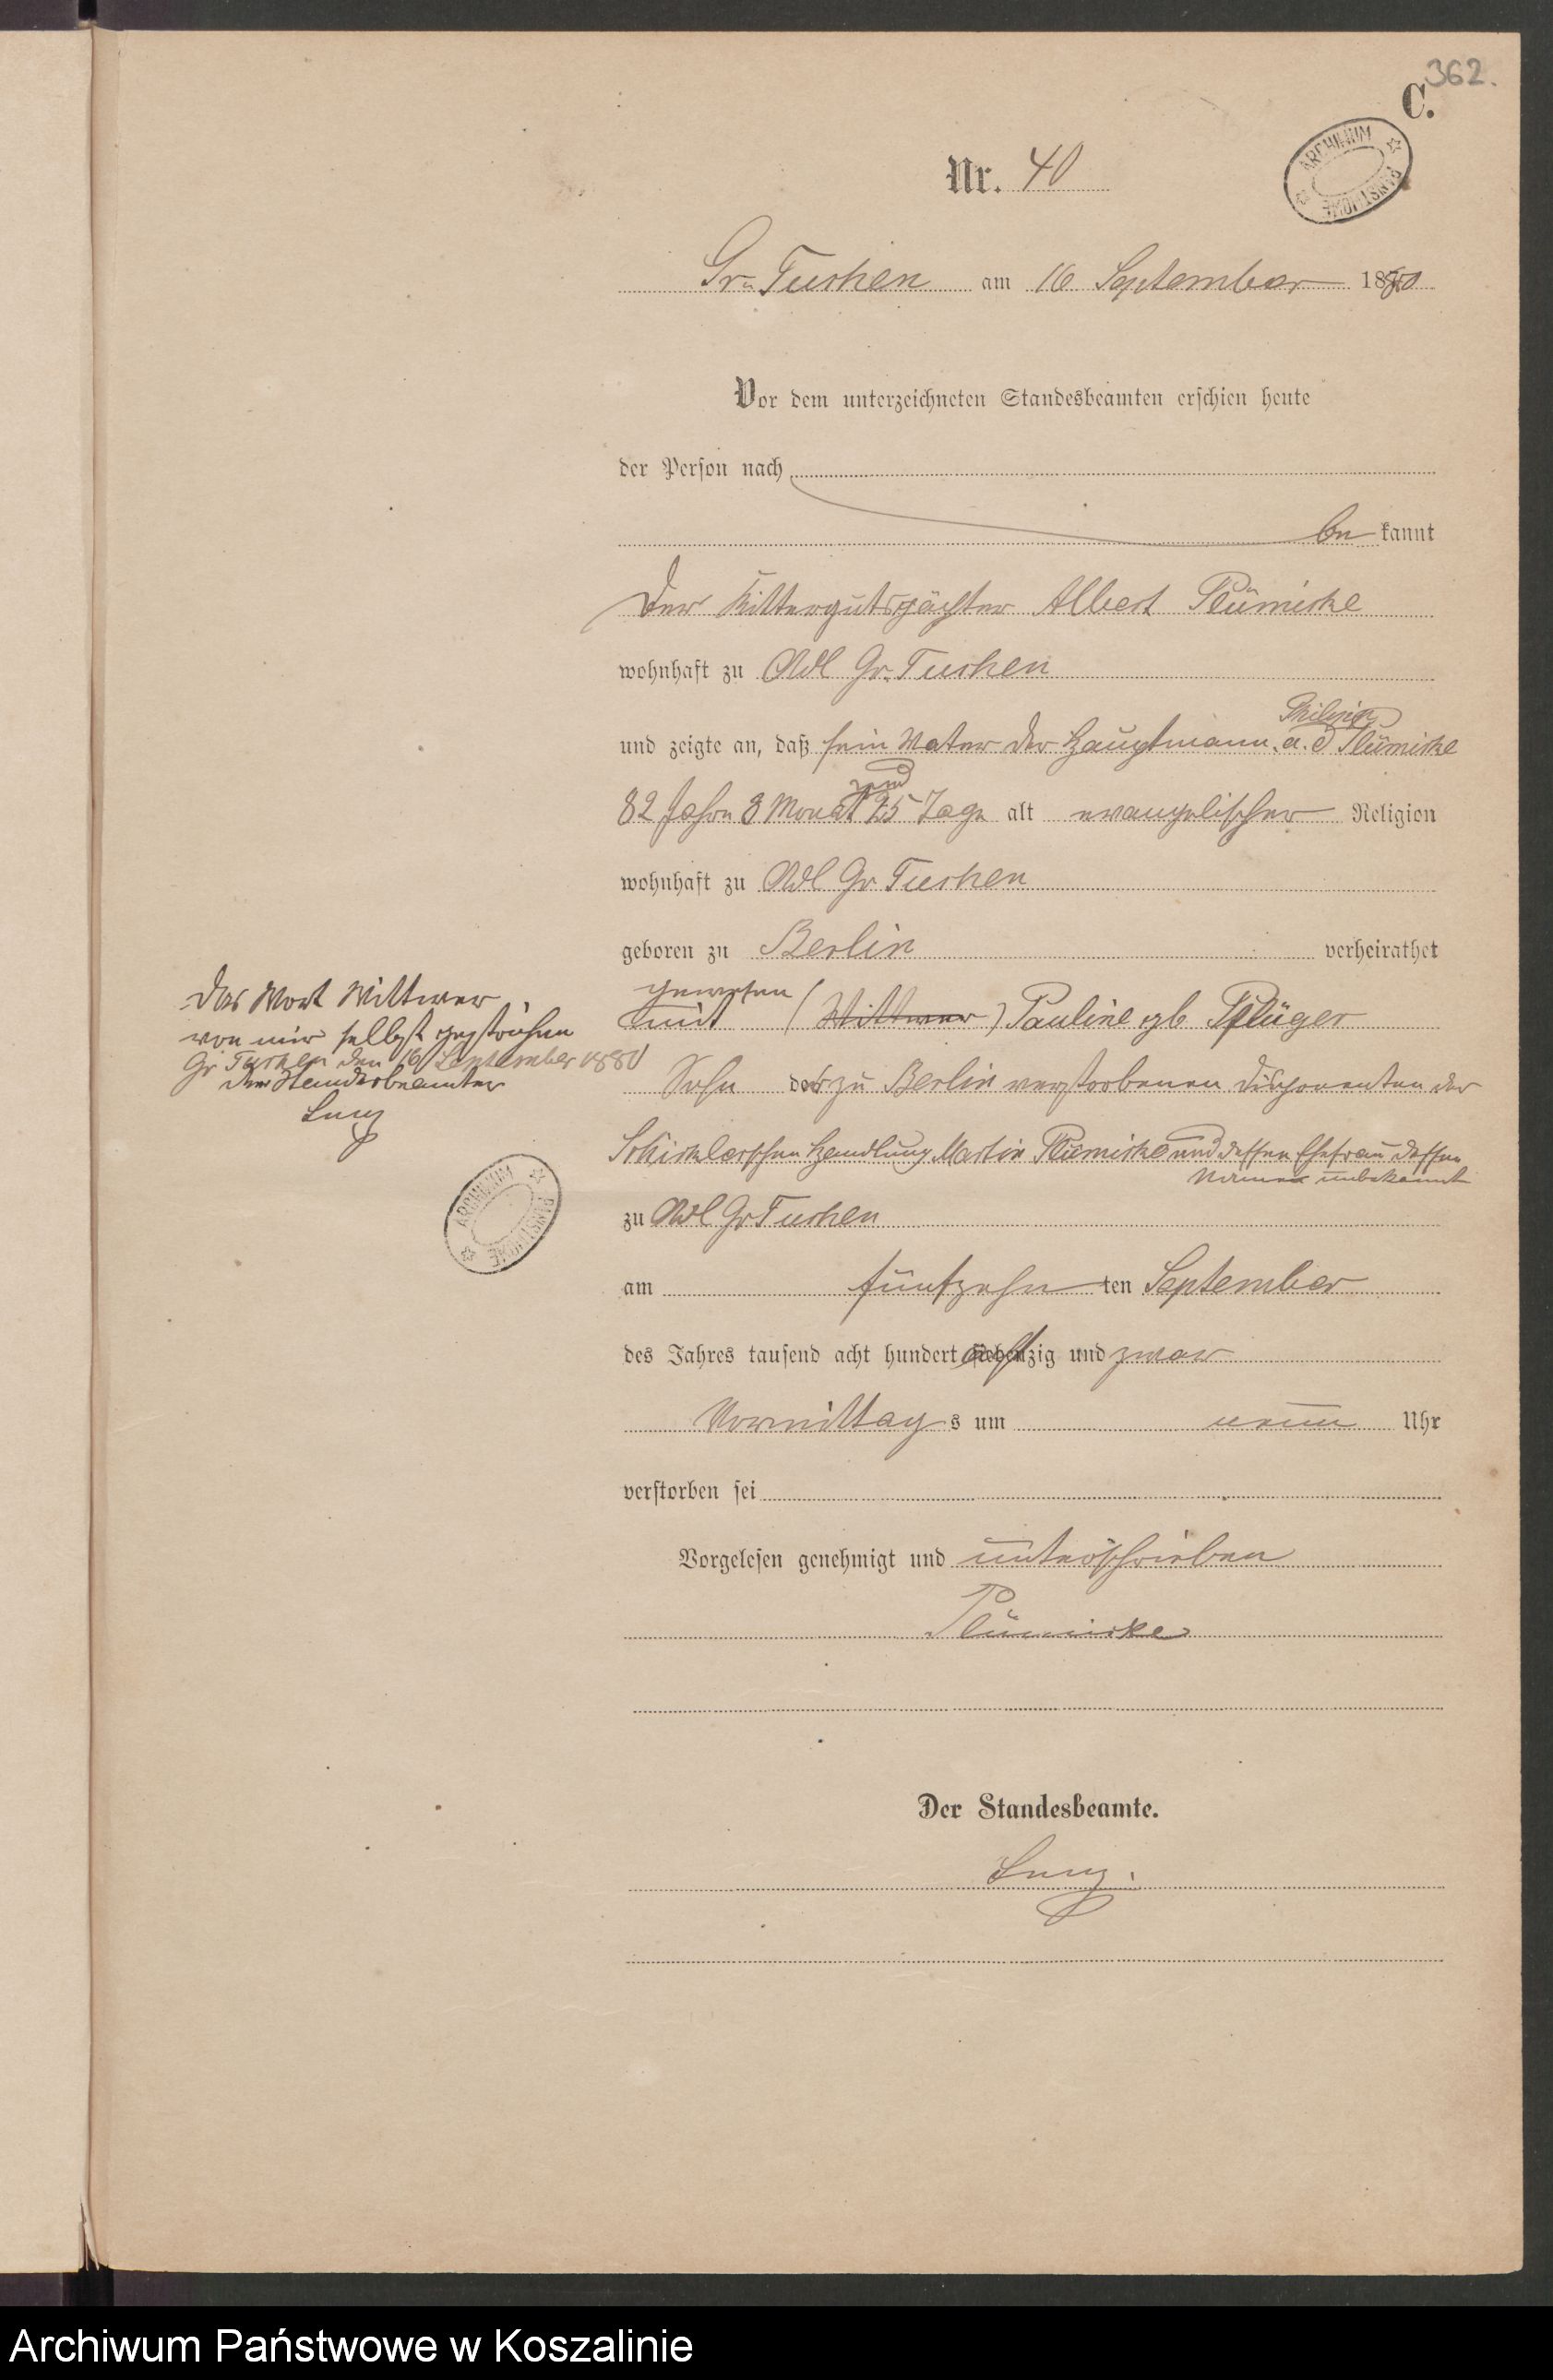 362.
C.
ARCHIWUM PAŃSTWOWE
Nr. 40
Gr. Tuchen am 16 September 1880
Vor dem unterzeichneten Standesbeamten erschien heute
der Person nach
be kannt
Der Rittergutspächter Albert Plümicke
wohnhaft zu Adl Gr. Tuchen
Philipp
und zeigte an, daß sein Vater der Hauptmann a. d Plümicke
und
82 Jahre 3 Monat 25 Tage alt evangelischer Religion
wohnhaft zu Adl Gr Tuchen
geboren zu Berlin verheirathet
gewesen
mit (Wittwer) Pauline gb Pflüger
Das Wort Wittwer
von mir selbst gestrichen
Gr Tuchen den 16 September 1880
Der Standesbeamter
Sohn des zu Berlin verstorbenen Disponenten der
Schicklerschen Handlung Martin Plümicke und dessen Ehefrau dessen
Namen unbekannt
ARCHIWUM PAŃSTWOWE
zu Adl Gr Tuchen
am fünfzehn ten September
des Jahres tausend acht hundert achtzig und zwar
Vormittag s um neun Uhr
verstorben sei
Vorgelesen genehmigt und unterschrieben
Plümicke
Der Standesbeamte.
Archiwum Państwowe w Koszalinie